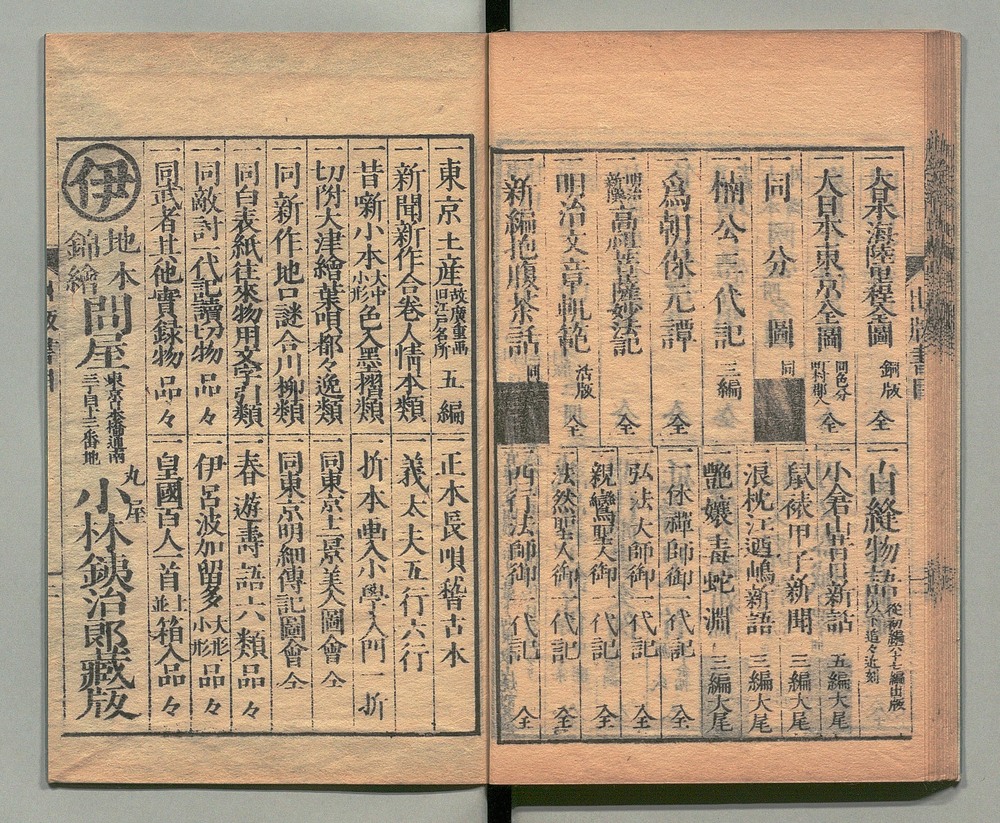 一大日本海陸里程全圖 銅版 全
一大日本東京全圖 同色分 全
一同 分圖 同
一楠公三代記 三編 全
一為朝保元譚 全
一高祖菩薩妙法記 全
一明治文章軌範 活版 全
一新編抱腹茶話 同
一古今縫物語 従初編六十七編出版 以下追々近刻
一小倉山青樹新話 五編大尾
一鼠裱甲子新聞 三編大尾
一浪枕江迺嶋新語 三編大尾
一艶孃毒蛇淵 三編大尾
一一休禪師御一代記 全
一弘法大師御一代記 全
一親鸞聖人御一代記 全
一法然聖人御一代記 全
一西行法師御一代記 全
出版書目
一東京土産 故廣重画 旧江戸名所 五編
一新聞新作合巻人情本類
一昔噺小本 大中小形 色入墨摺類
一切附大津繪葉唄都々逸類
一同新作地口謎合川柳類
一同白表紙往來物用文字引類
一同敵討一代記讀切物 品々
一同武者其他實録物 品々
一正本長唄稽古本
一義太夫五行六行
一折本畫入小學入門 一折
一同東京十二景美人圖會 全
一同東京明細傳記圖會 全
一春遊壽語六類 品々
一伊呂波加留多 大形 小形 品々
一皇國百人一首 上並 箱入品々
伊
地本
錦繪
問屋
東京日本橋通南
三丁目十三番地
丸屋
小林鉄治郎藏版